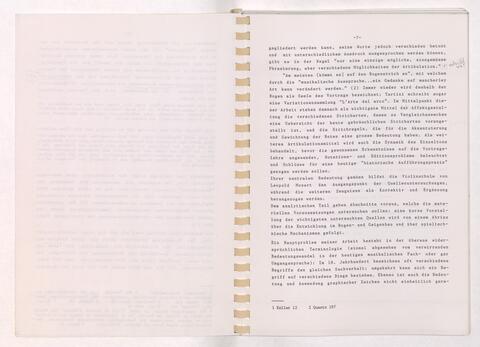 - 7 -
gegliedert werden kann, seine Worte jedoch verschieden betont
und mit unterschiedlichem Ausdruck ausgesprochen werden können,
gibt es in der Regel "nur eine einzige mögliche, sinngemässe
Phrasierung, aber verschiedene Möglichkeiten der Artikulation."
"Am meisten [kömmt es] auf den Bogenstrich an", mit welchem
durch die "musikalische Aussprache...ein Gedanke auf mancherley
Art kann verändert werden." (2) Immer wieder wird deshalb der
Bogen als Seele des Vortrags bezeichnet; Tartini schrieb sogar
eine Variationensammlung "L'arte del arco". Im Mittelpunkt die-
ser Arbeit stehen demnach als wichtigste Mittel der Affektgestal-
tung die verschiedenen Stricharten, denen zu Vergleichszwecken
eine Uebersicht der heute gebräuchlichen Stricharten vorange-
stellt ist, und die Strichregeln, die für die Akzentuierung
und Gewichtung der Noten eine grosse Bedeutung haben. Als wei-
teres Artikulationsmittel wird auch die Dynamik des Einzeltons
behandelt, bevor die gewonnenen Erkenntnisse auf die Vortrags-
lehre angewendet, Notations- und Editionsprobleme beleuchtet
und Schlüsse für eine heutige "historische Aufführungspraxis"
gezogen werden sollen.
Ihrer zentralen Bedeutung gemäss bildet die Violinschule von
Leopold Mozart den Ausgangspunkt der Quellenuntersuchungen,
während die weiteren Zeugnisse als Kontrastiv und Ergänzung
herangezogen werden.
Dem analytischen Teil gehen Abschnitte voraus, welche die mate-
riellen Voraussetzungen untersuchen sollen: eine kurze Vorstel-
lung der wichtigsten untersuchten Quellen wird von einem Abriss
über die Entwicklung im Bogen- und Geigenbau und über spieltech-
nische Mechanismen gefolgt.
Ein Hauptproblem meiner Arbeit besteht in der überaus wider-
sprüchlichen Terminologie (einmal abgesehen vom verwirrenden
Bedeutungswandel in der heutigen musikalischen Fach- oder gar
Umgangssprache): Im 18. Jahrhundert bezeichnen oft verschiedene
Begriffe den gleichen Sachverhalt; umgekehrt kann sich ein Be-
griff auf verschiedene Dinge beziehen. Ebenso ist auch die Bedeu-
tung und Anwendung graphischer Zeichen nicht einheitlich gere-
1 Keller 12 2 Quantz 107